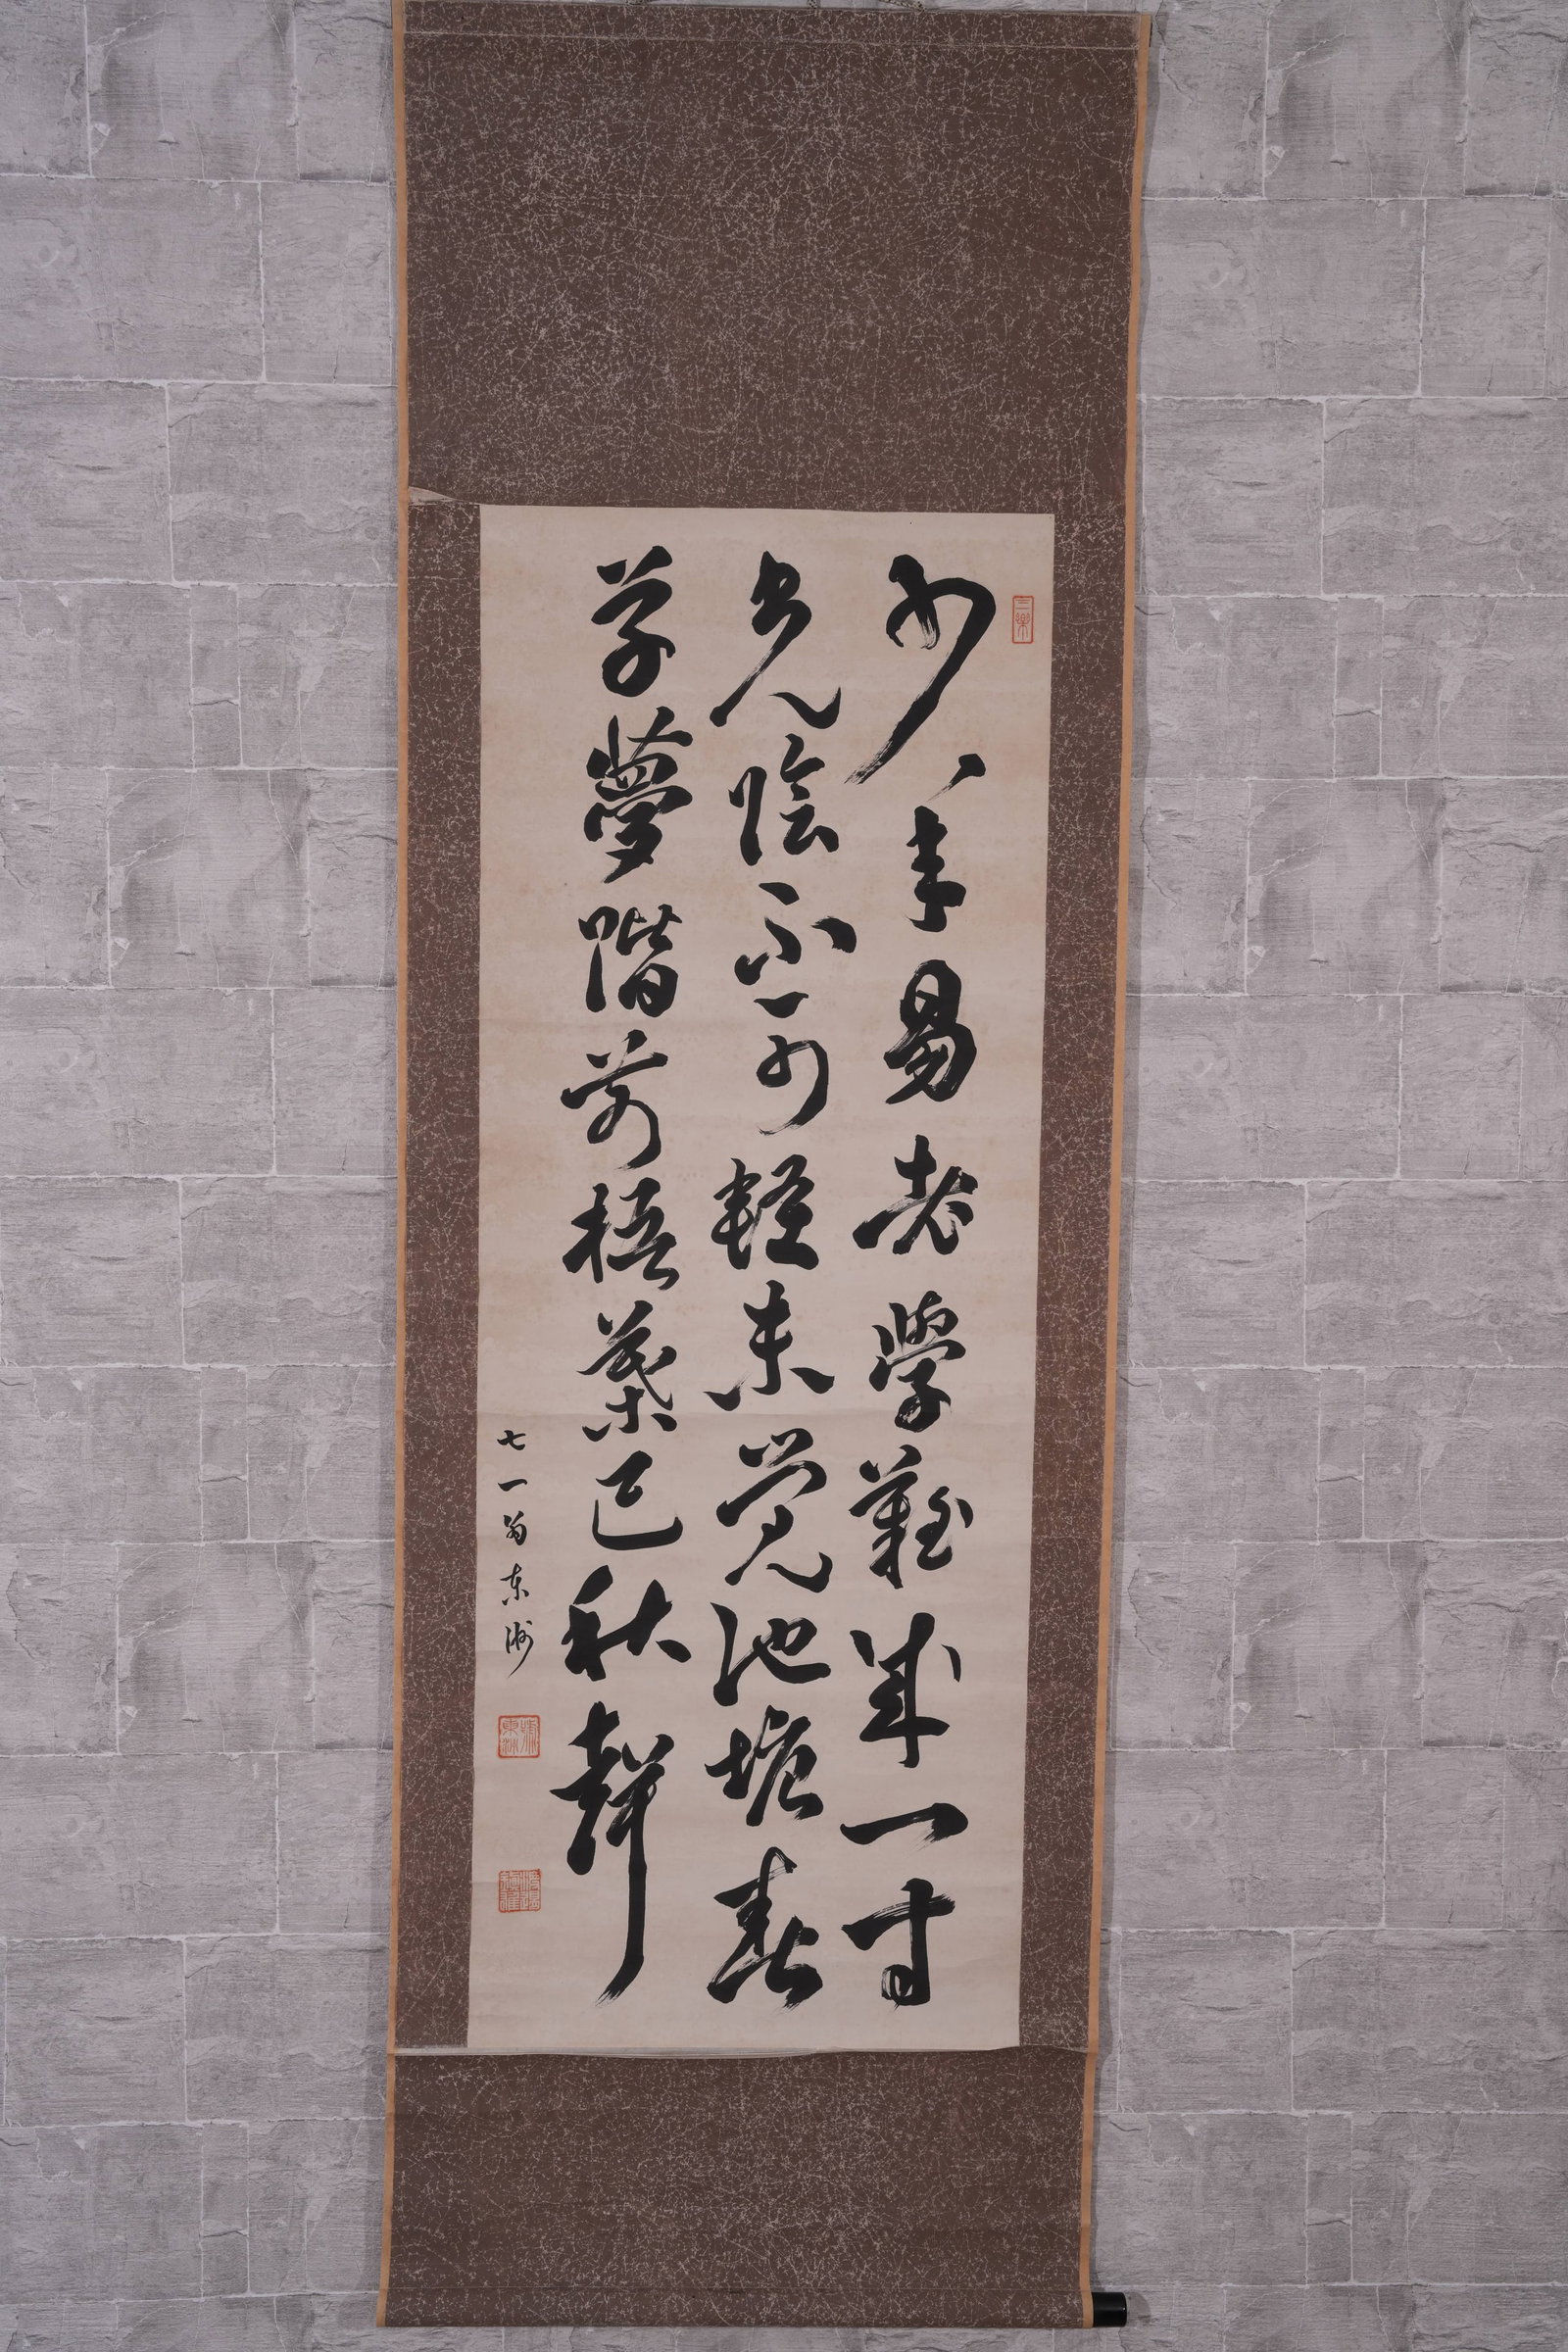 少年易老學難成一寸
光陰不可輕未覚池塘春
草夢階前梧葉已秋聲
七一翁東洲